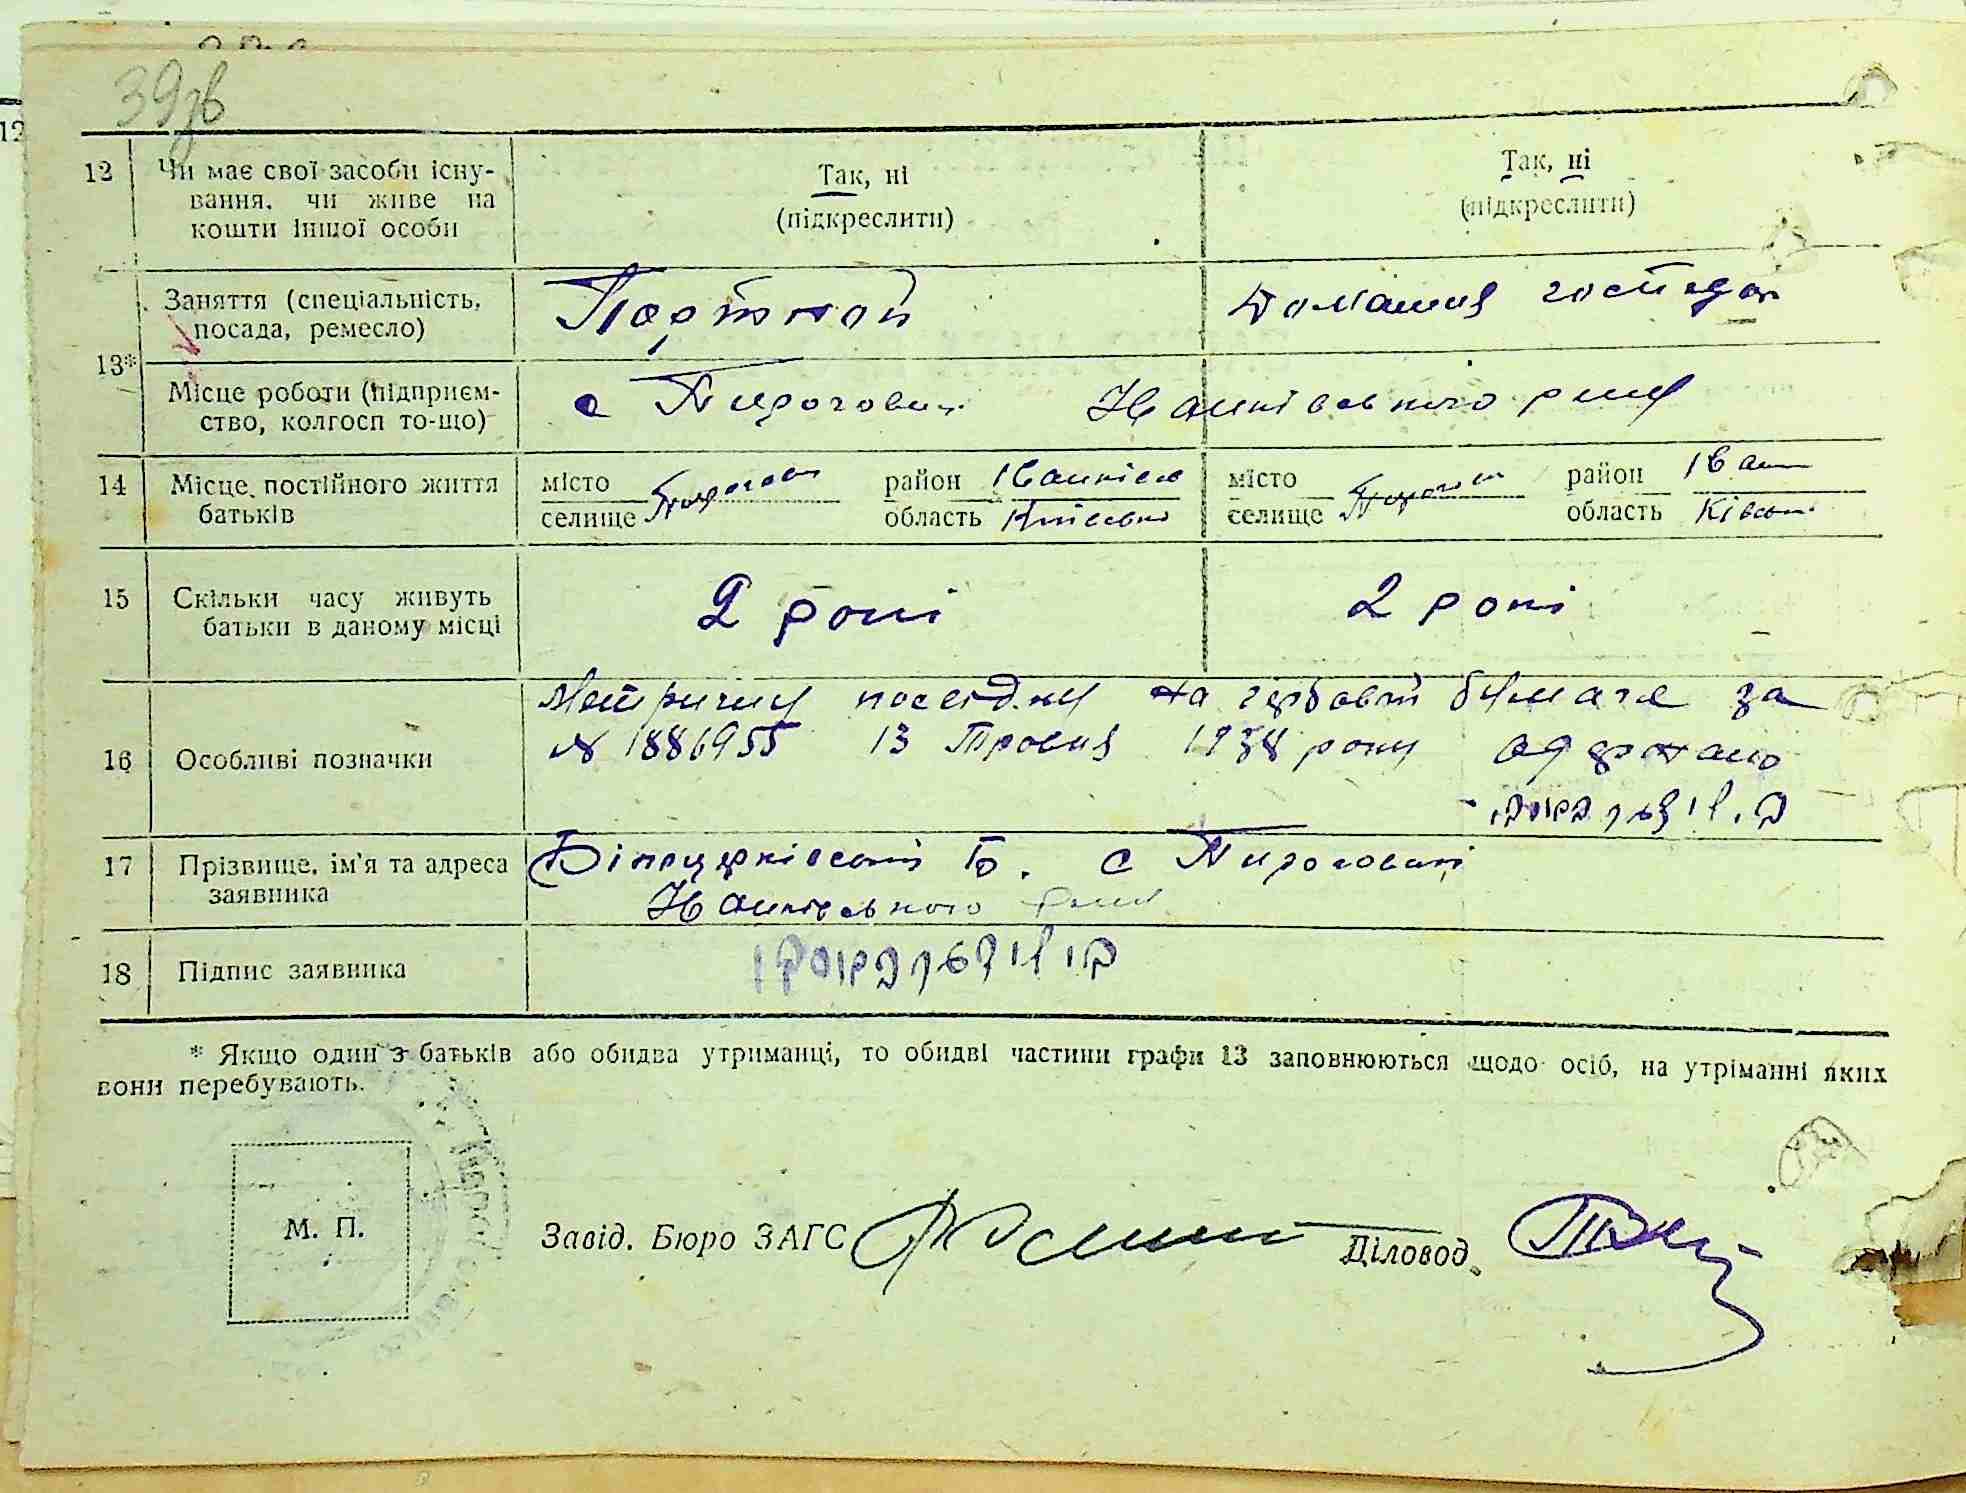 39зв
12 Чи має свої засоби існу-
вання, чи живе на
кошти іншої особи
Так, ні
(підкреслити)
Так, ні
(підкреслити)
13*
Заняття (спеціальність,
посада, ремесло)
Портной
Домашня господар
Місце роботи (підприєм-
ство, колгосп то-що)
с Пироговичі Іванківського р-ну
14 Місце постійного життя
батьків
місто
селище Пирогович
район Іванків
область Київська
місто
селище Пирогович
район Іван
область Київськ
15 Скільки часу живуть
батьки в даному місці
2 роки
2 роки
16 Особливі позначки
Метричну посвідку на гербовій бумагі за
№ 1886955 13 Травня 1938 року одержано
17 Прізвище, ім'я та адреса
заявника
Білоцерківський Б. с Пироговичі
Іванківського р-ну
18 Підпис заявника
* Якщо один з батьків або обидва утриманці, то обидві частини графи 13 заповнюються щодо осіб, на утриманні яких
вони перебувають.
М. П.
Завід. Бюро ЗАГС
Діловод